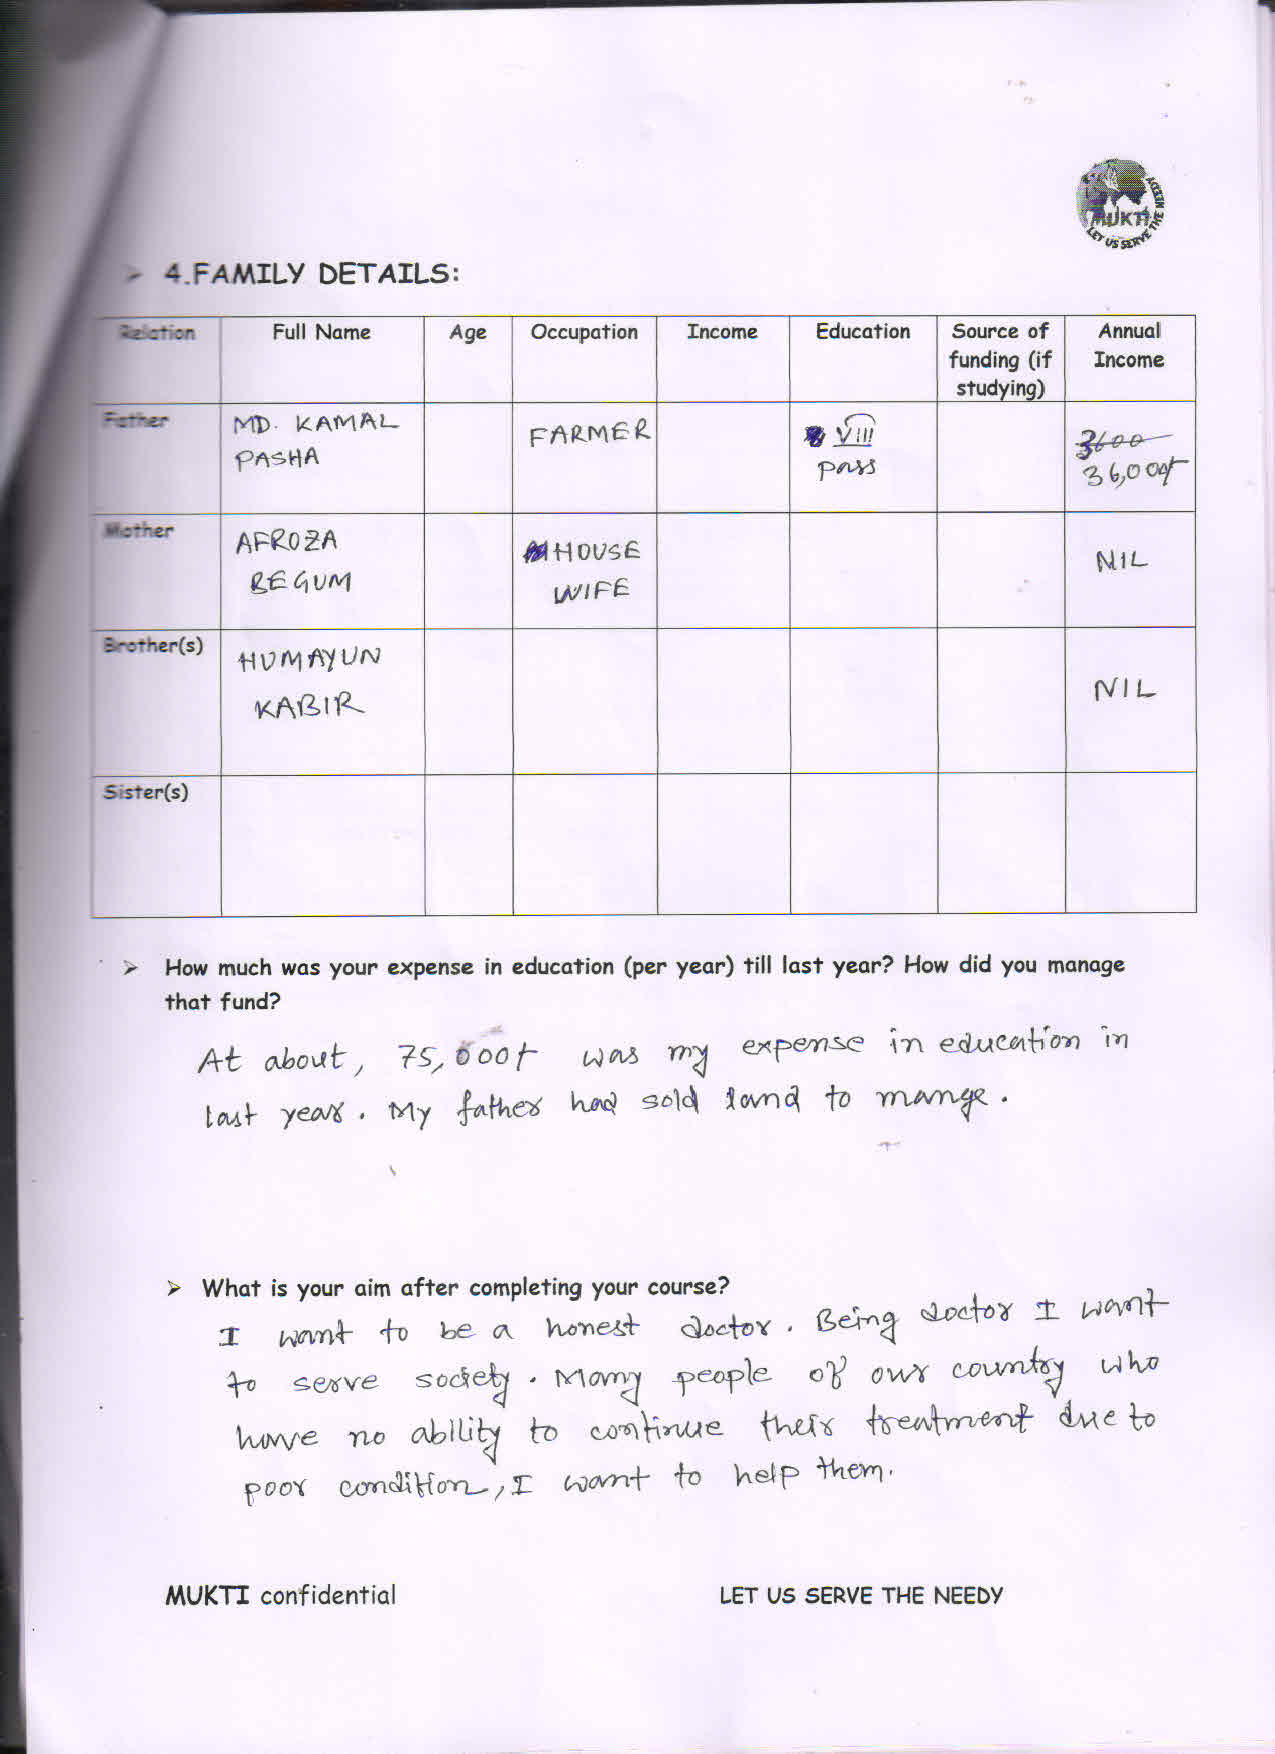 MUKTI
LET US SERVE THE NEEDY
➢ 4.FAMILY DETAILS:
Relation Full Name Age Occupation Income Education Source of funding (if studying) Annual Income
Father MD. KAMAL PASHA FARMER VIII pass 3600 36,000/-
Mother AFROZA BEGUM HOUSE WIFE NIL
Brother(s) HUMAYUN KABIR NIL
Sister(s)
➢ How much was your expense in education (per year) till last year? How did you manage
that fund?
At about, 75,000/- was my expense in education in
last year. My father had sold land to mange.
➢ What is your aim after completing your course?
I want to be a honest doctor. Being doctor I want
to serve society. Many people of our country who
have no ability to continue their treatment due to
poor condition, I want to help them.
MUKTI confidential LET US SERVE THE NEEDY